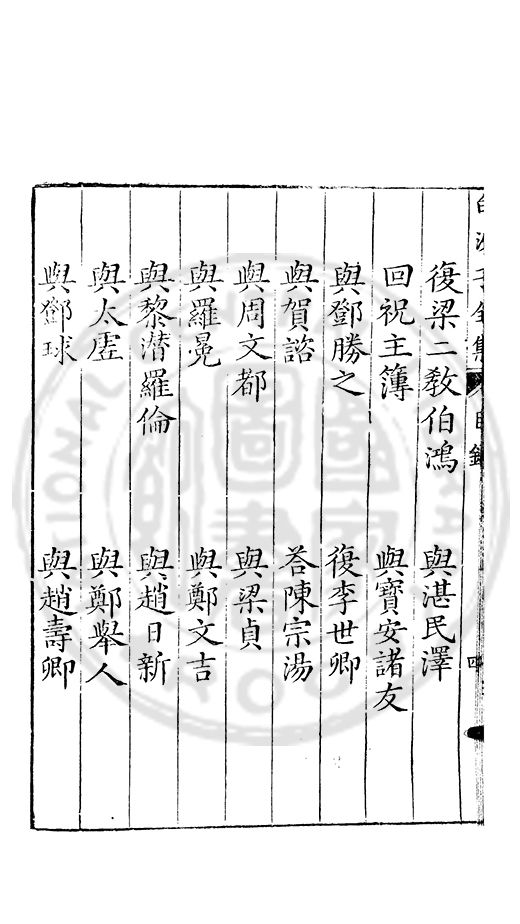 復梁二教伯鴻 與湛民澤
回祝主簿 與寶安諸友
與鄧勝之 復李世卿
與賀諮 荅陳宗湯
與周文都 與梁貞
與羅冕 與鄭文吉
與黎潛羅倫 與趙日新
與太虛 與鄭舉人
與鄧球 與趙壽卿